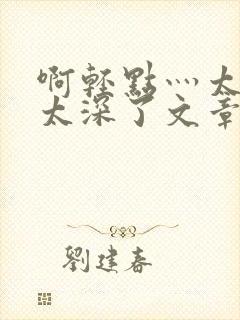 啊輕點灬太
太深了文章
劉建春